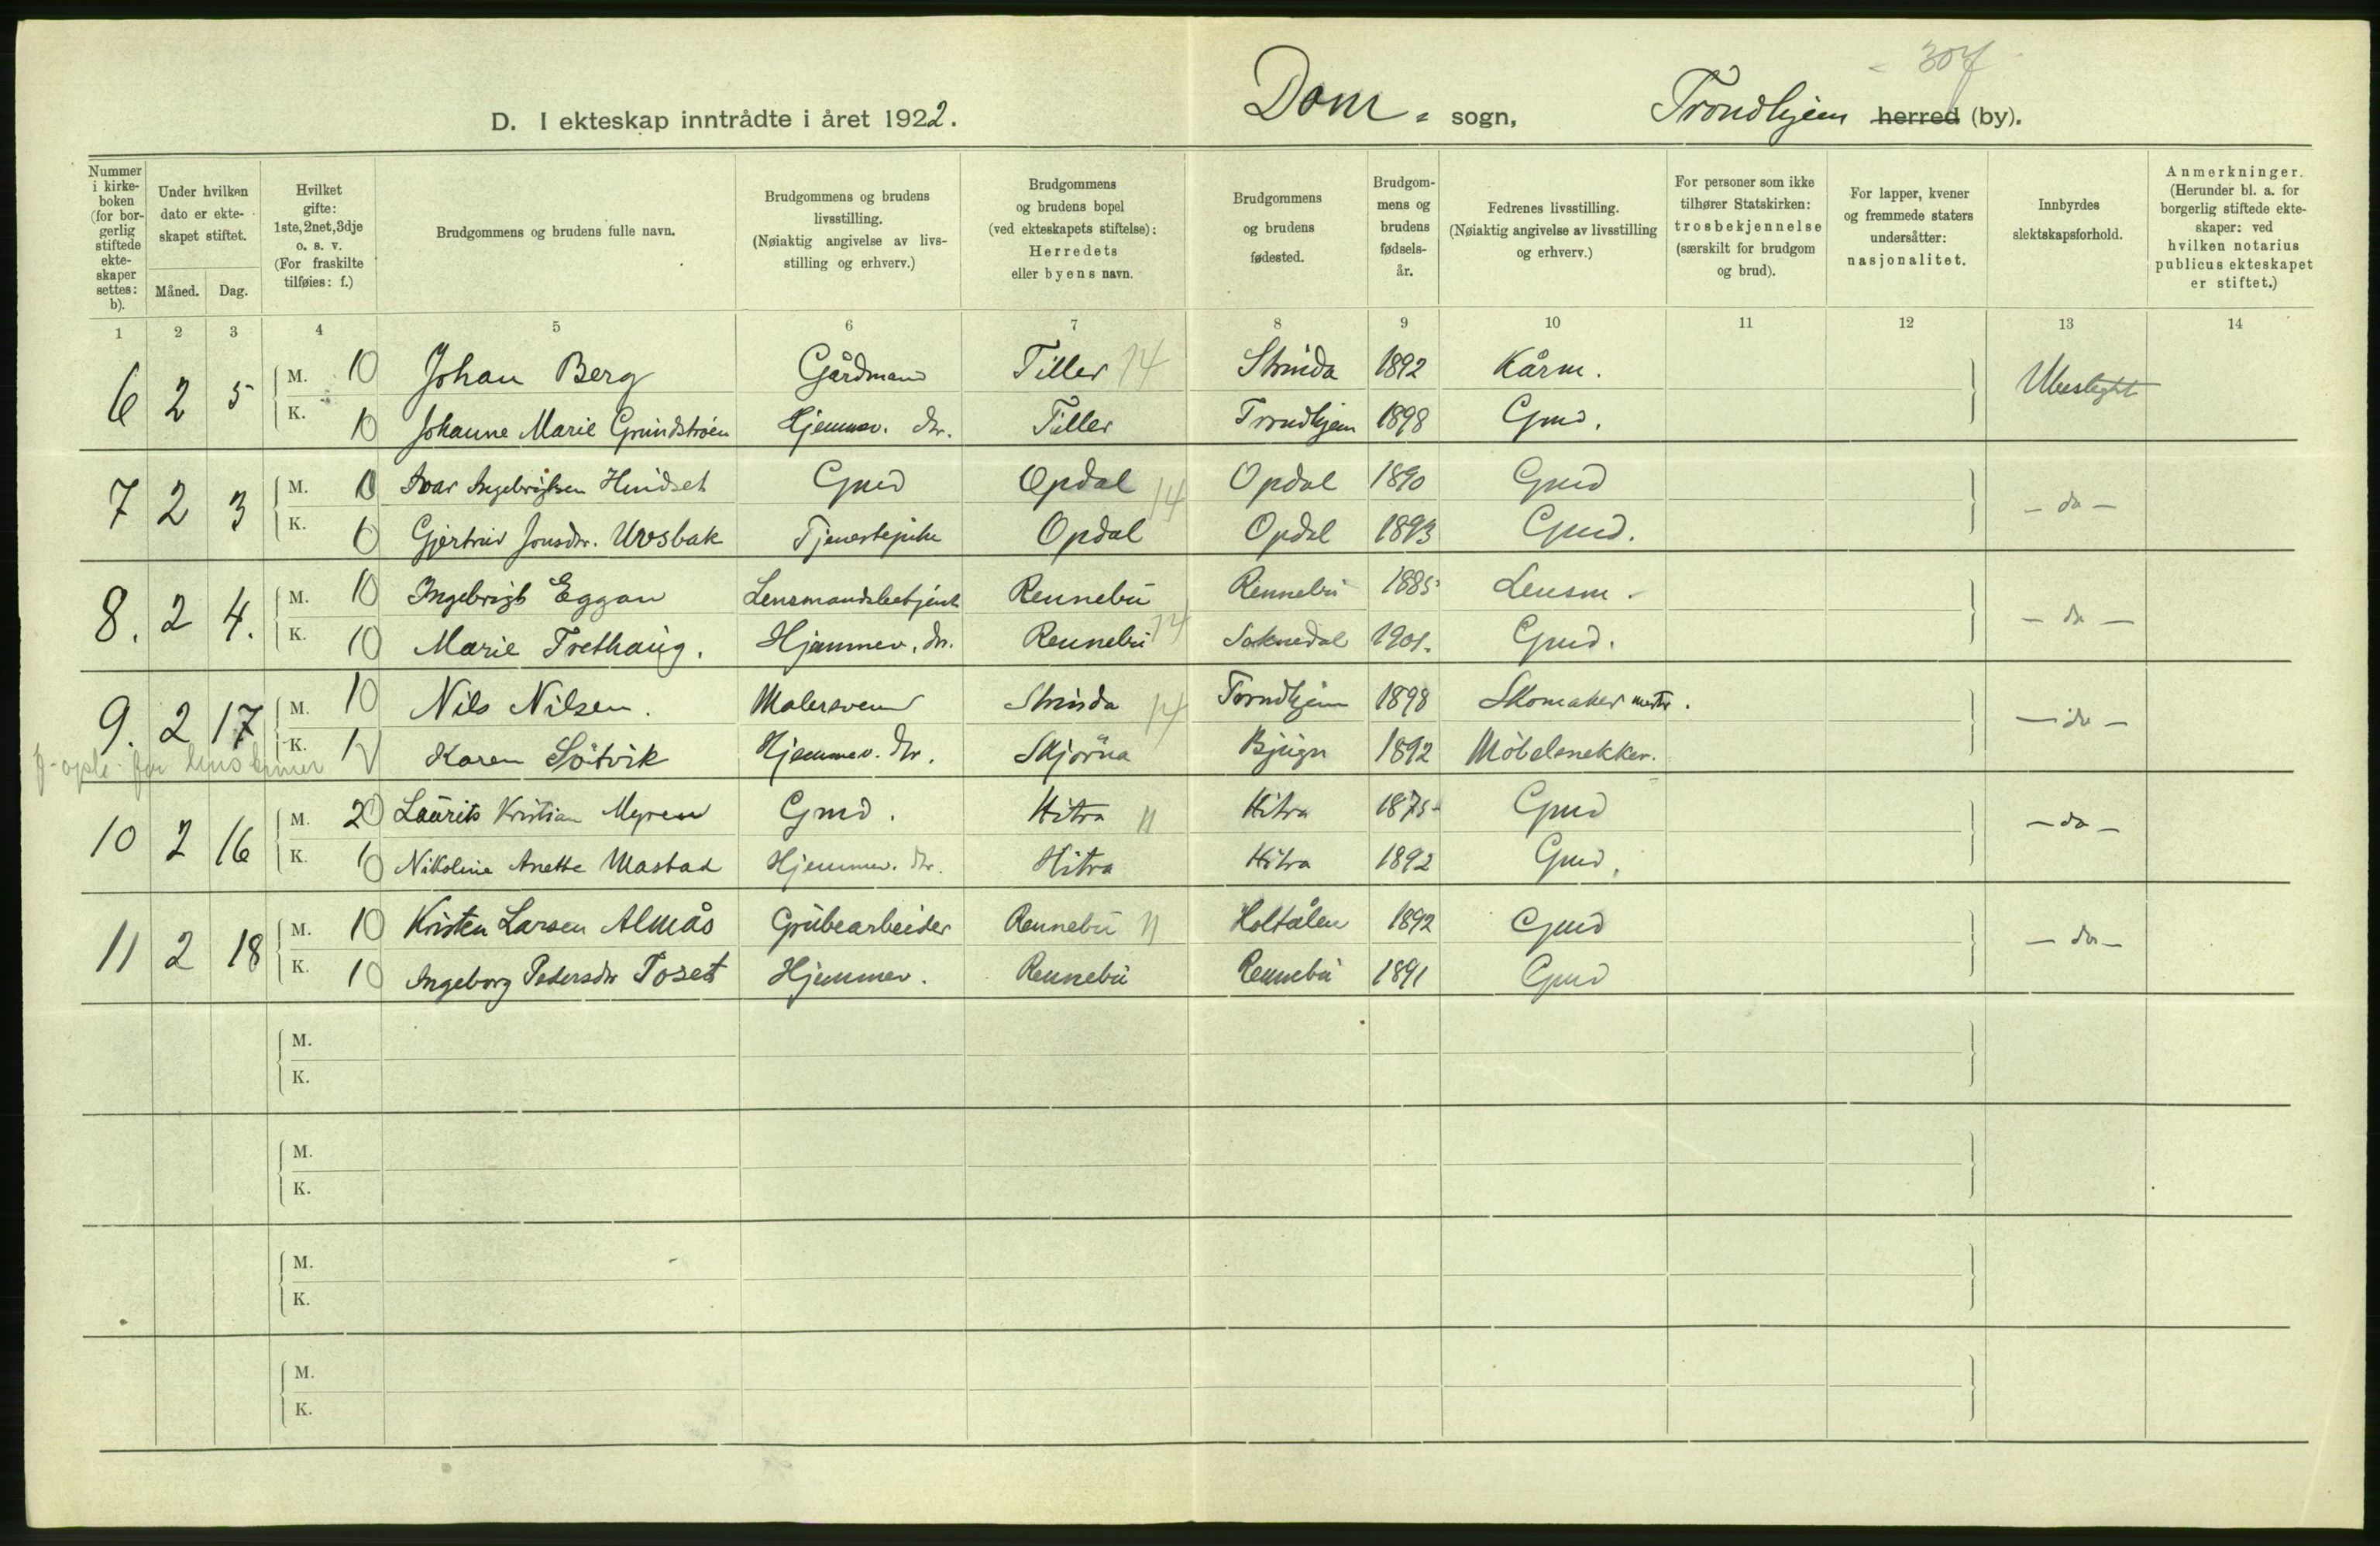 307
D. I ekteskap inntrådte i året 1922. Dom- sogn, Trondhjem herred (by).
Nummer i kirkeboken (for borgerlig stiftede ekteskaper settes: b).
Under hvilken dato er ekteskapet stiftet.
Måned. Dag.
Hvilket gifte: 1ste, 2net, 3dje o. s. v. (For fraskilte tilføies: f.)
Brudgommens og brudens fulle navn.
Brudgommens og brudens livsstilling. (Nøiaktig angivelse av livsstilling og erhverv.)
Brudgommens og brudens bopel (ved ekteskapets stiftelse): Herredets eller byens navn.
Brudgommens og brudens fødested.
Brudgommens og brudens fødselsår.
Fedrenes livsstilling. (Nøiaktig angivelse av livsstilling og erhverv.)
For personer som ikke tilhører Statskirken: trosbekjennelse (særskilt for brudgom og brud).
For lapper, kvener og fremmede staters undersåtter: nasjonalitet.
Innbyrdes slektskapsforhold.
Anmerkninger. (Herunder bl. a. for borgerlig stiftede ekteskaper: ved hvilken notarius publicus ekteskapet er stiftet.)
1 2 3 4 5 6 7 8 9 10 11 12 13 14
6 2 5 M. 10 Johan Berg Gårdmand Tiller 14 Strinda 1892 Kårm. Ubeslegtet
K. 10 Johanne Marie Grundstrøm Hjemmev. dtr. Tiller Trondhjem 1898 Gmd.
7 2 3 M. 10 Ivar Ingebrigtsen Hindset Gmd Opdal 14 Opdal 1890 Gmd - do -
K. 10 Gjertrud Jonsdtr. Uvsbak Tjenestepike Opdal Opdal 1893 Gmd.
8. 2 4. M. 10 Ingebrigt Eggan Lensmandsbetjent Rennebu 14 Rennebu 1885 Lensm. - do -
K. 10 Marie Trethaug. Hjemmev. dtr. Rennebu Soknedal 1901. Gmd.
9. 2 17 M. 10 Nils Nilsen. Malersvend Strinda 14 Trondhjem 1898 Skomakermester. - do -
K. 1 Karen Sötvik Hjemmev. dtr. Skjørna Bjugn 1892 Möbelsnekker.
10 2 16 M. 20 Laurits Kristian Myren Gmd. Hitra 11 Hitra 1875 Gmd - do -
K. 10 Nikoline Anette Mastad Hjemmev. dtr. Hitra Hitra 1892 Gmd.
11 2 18 M. 10 Kristen Larsen Almås Grubearbeider Rennebu 11 Holtålen 1892 Gmd - do -
K. 10 Ingeborg Pedersdtr Toset Hjemmev. Rennebu Rennebu 1891 Gmd
M.
K.
M.
K.
M.
K.
M.
K.